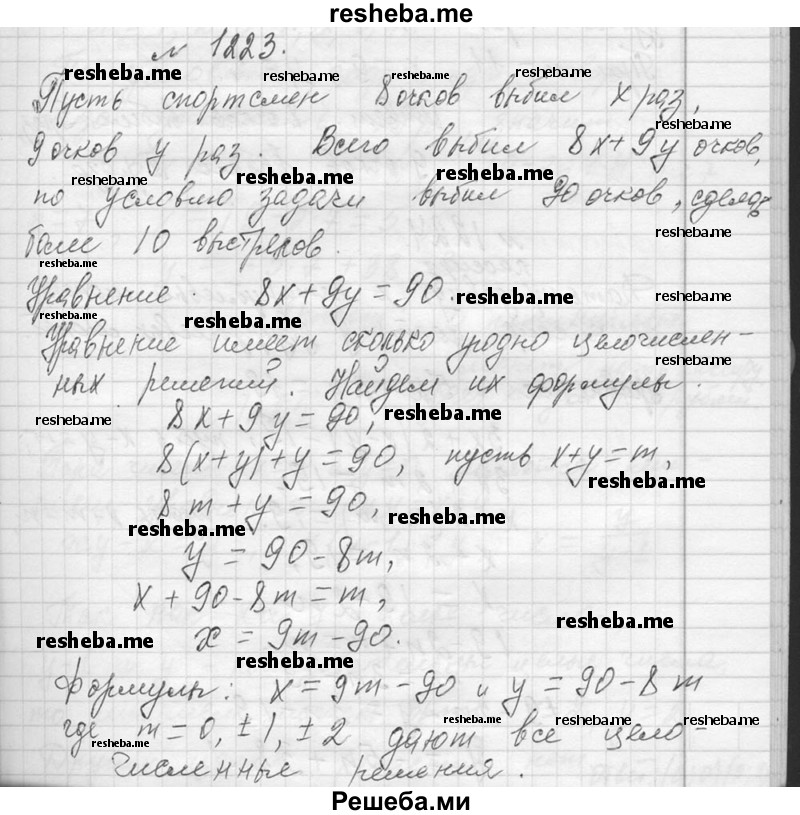 resheba.me
№ 1223.
resheba.me resheba.me resheba.me resheba.me
Пусть спортсмен 8 очков выбил x раз,
resheba.me
9 очков y раз. Всего выбил 8x+9y очков,
resheba.me resheba.me resheba.me
по условию задачи выбил 90 очков, сделав
resheba.me
более 10 выстрелов.
resheba.me
Уравнение. 8x+9y=90.
resheba.me resheba.me
resheba.me resheba.me
Уравнение имеет сколько угодно целочислен-
resheba.me
ных решений. Найдем их формулы.
8x+9y=90,
resheba.me resheba.me
8(x+y)+y=90, пусть x+y=m,
resheba.me
8m+y=90,
resheba.me resheba.me
y=90-8m,
x+90-8m=m,
resheba.me
x=9m-90.
resheba.me resheba.me
Формулы: x=9m-90 и y=90-8m
resheba.me resheba.me resheba.me
где m=0, ±1, ±2 дают все цело-
resheba.me
численные решения.
Решеба.ми